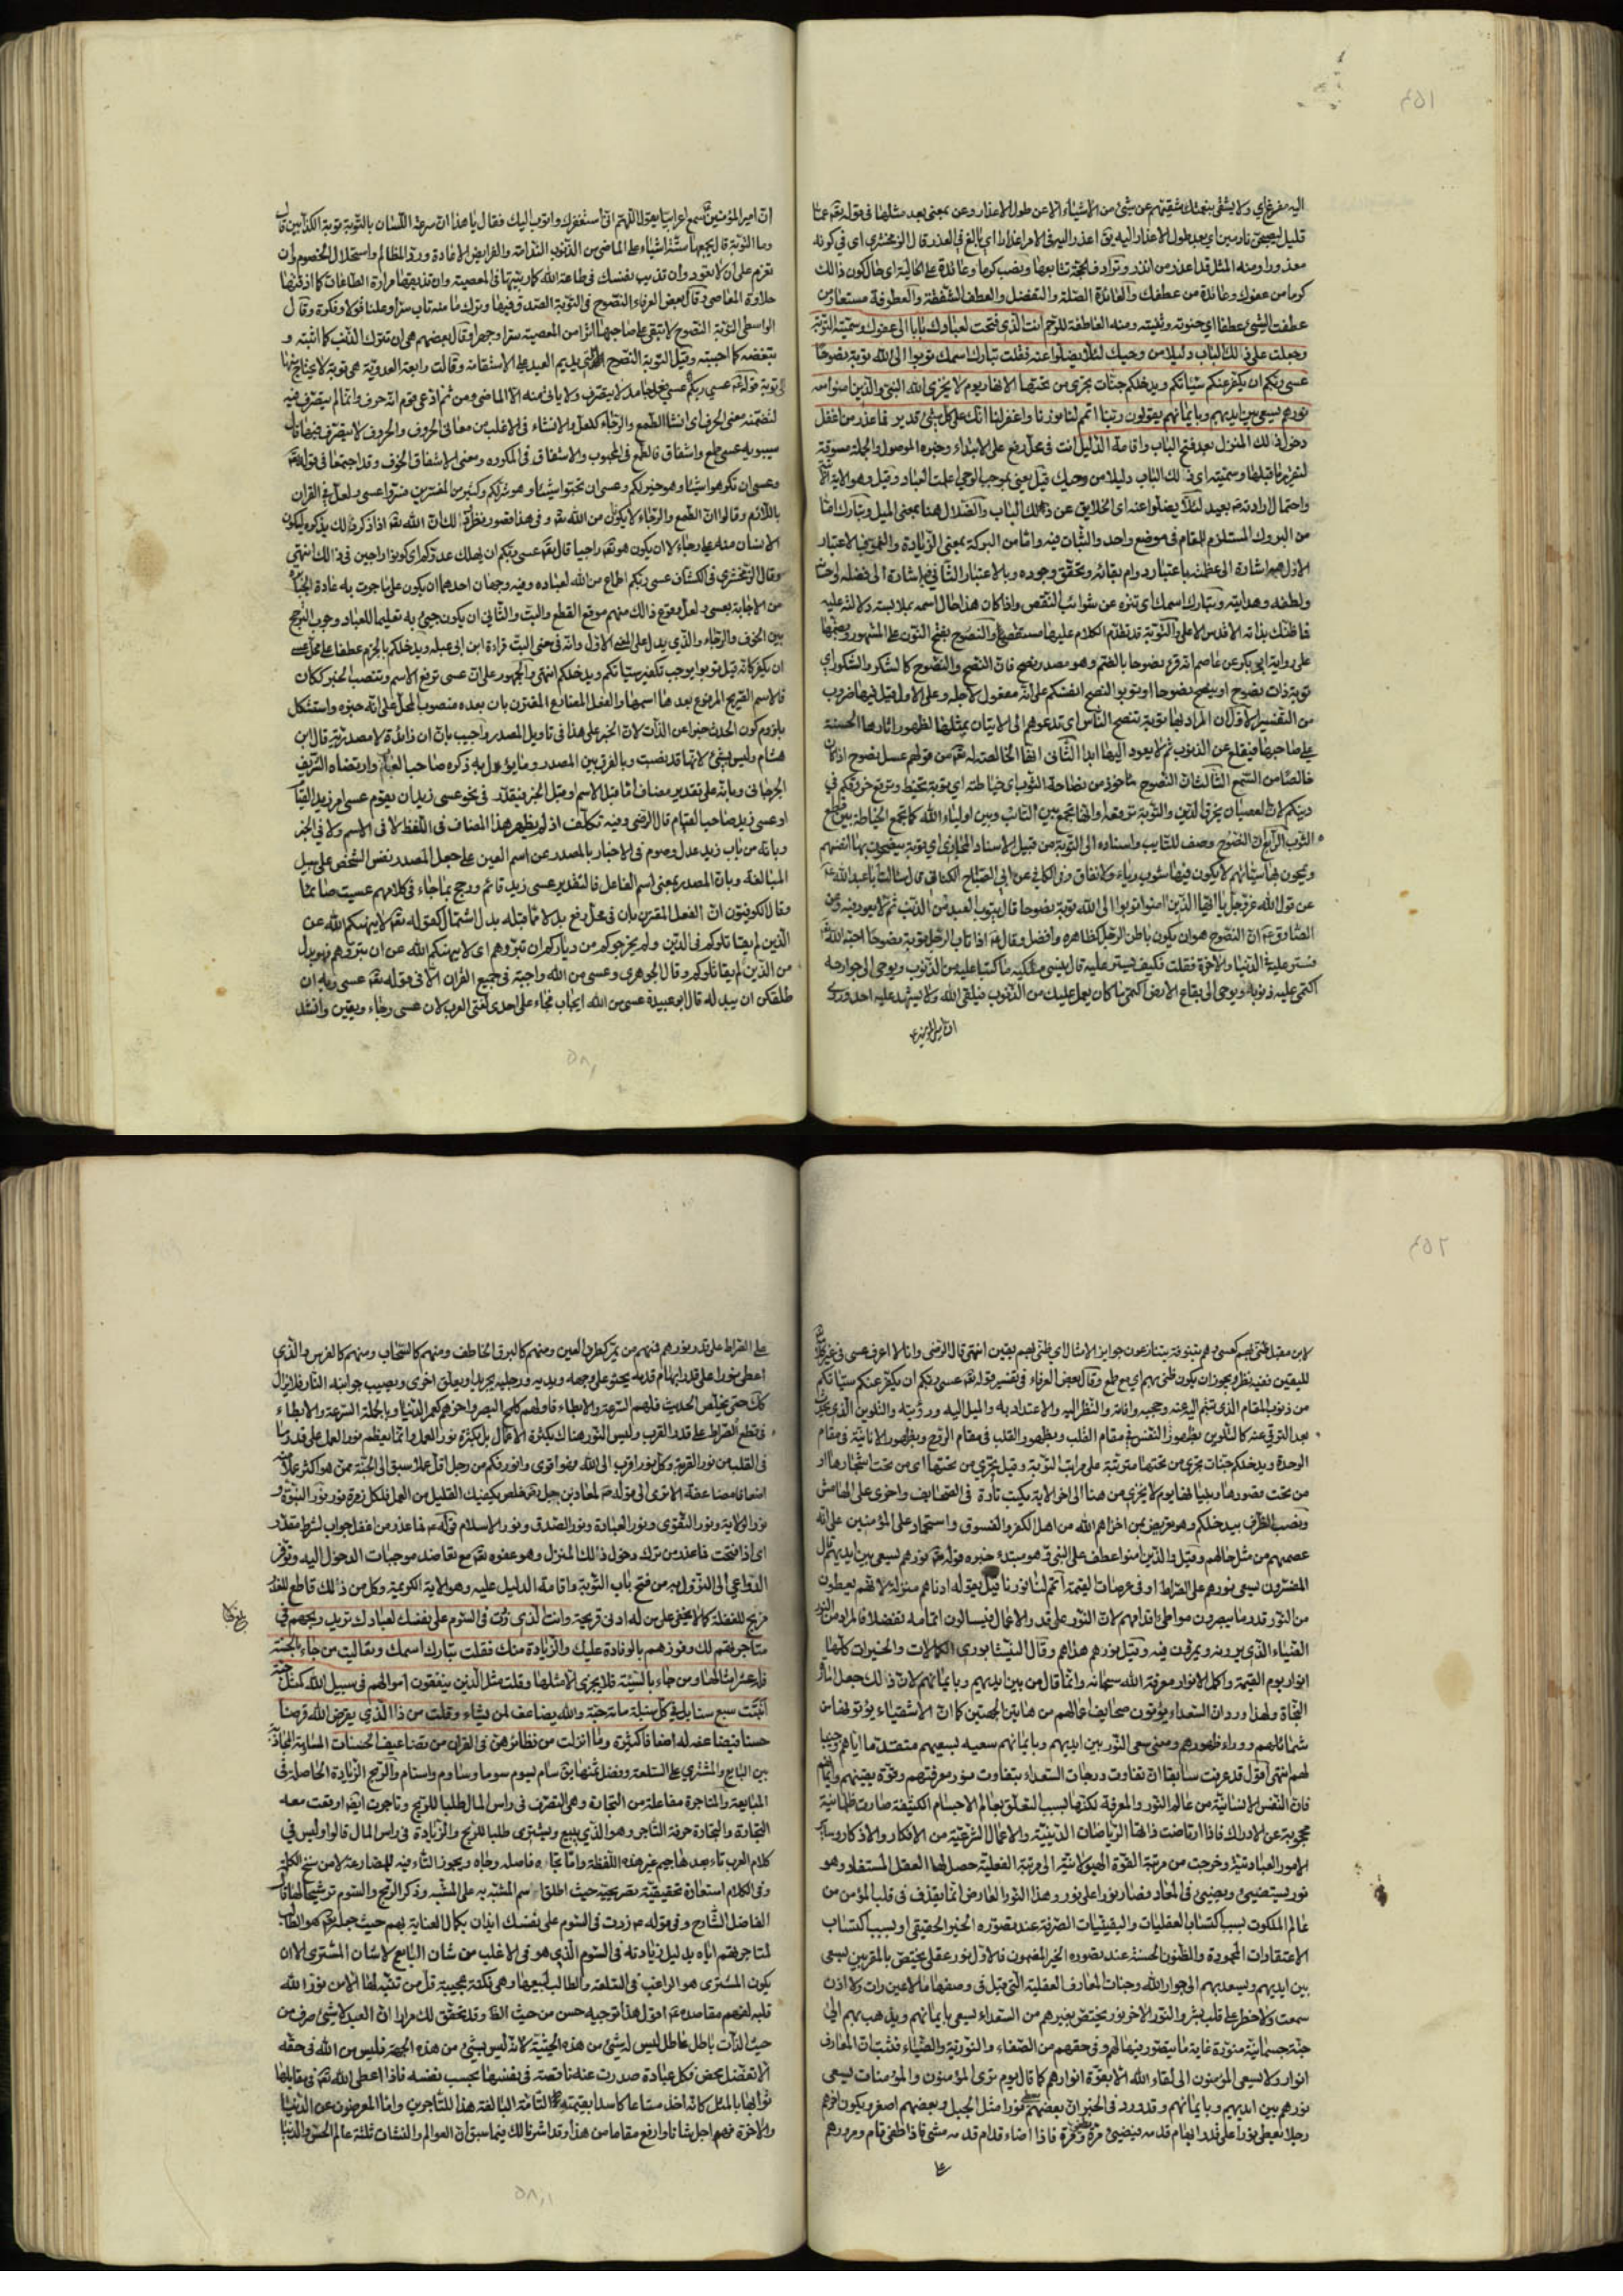 ٤٥١
اليه مفزع اي ولا يشقى بنعمتك شقيّهم عن شيء من الاشياء الا عن طول الاعذار وعن بمعنى بعد مثلها فى قوله تعه عمّا
قليل ليصبحنّ نادمين اي بعد طول الاعذار اليه يق اعذر اليه فى الامر اعذارا اي بالغ فى العذر قال الزمخشري اى فى كونه
كرما من عفوك وعائدة من عطفك والعائدة الصّلة والتفضل والعطف الشفقة والعطوفة مستعار من
عطفت الشيء عطفا اي حنوته وثنيته ومنه العاطفة للرّحم انت الّذي فتحت لعبادك بابا الى عفوك وسمّيته التّوبة
وجعلت على ذلك الباب دليلا من وحيك لئلّا يضلّوا عنه فقلت تبارك اسمك توبوا الى الله توبة نصوحا
عسى ربّكم ان يكفّر عنكم سيّئاتكم ويدخلكم جنّات تجري من تحتها الانهار يوم لا يخزي الله النبيّ والّذين امنوا معه
نورهم يسعى بين ايديهم وبايمانهم يقولون ربّنا اتمم لنا نورنا واغفر لنا انّك على كلّ شيء قدير فما عذر من اغفل
دخول ذلك المنزل بعد فتح الباب واقامة الدّليل انت فى محلّ رفع على الابتداء وخبره الموصول والجملة مسوقة
واحتمال ارادته بعيد لئلّا يضلوا عنه اى الخلايق عن ذلك الباب والضّلال هنا بمعنى الميل وتبارك امّا
من البروك المستلزم للمقام فى موضع واحد والثبات فيه وامّا من البركة بمعنى الزّيادة والنموّ فبالاعتبار
الاوّل هو اشارة الى عظمته باعتبار دوام بقائه وتحقّق وجوده وبالاعتبار الثّانى اشارة الى فضله
على رواية ابى بكر عن عاصم انّه قرء نصوحا بالضّم وهو مصدر نصح فانّ النصح والنّصوح كالشكر والشّكور اي
توبة ذات نصوح او ينصح نصوحا او توبوا لنصح انفسكم على انّه مفعول لاجله وعلى الاول قيل فيها ضروب
من التّفسير الاوّل انّ المراد بها توبة تنصح النّاس اى تدعوهم الى الاتيان بمثلها لظهور اثارها الحسنة
على صاحبها فيقلع عن الذّنوب ثم لا يعود اليها ابدا الثّانى انها الخالصة لله تعه من قولهم عسل نصوح اذا كان
خالصا من الشمع الثّالث انّ النّصوح ماخوذ من نصاحة الثّوب اي خياطته اي توبة تخيط وترقع خروقكم في
دينكم لانّ العصيان يخرق الدّين والتّوبة ترقعه او انّها تجمع بين التّائب وبين اولياء الله كما تجمع الخياطة بين قطع
الثوب الرّابع انّ النّصوح وصف للتّايب واسناده الى التّوبة من قبيل الاسناد المجازى اي توبة ينصحون بها انفسهم
عن قول الله عزّ وجلّ يا ايّها الّذين امنوا توبوا الى الله توبة نصوحا قال يتوب العبد من الذّنب ثم لا يعود فيه وعن
الصّادق ع انّ النّصوح هو ان يكون باطن الرّجل كظاهره وافضل وقال ع اذا تاب الرّجل توبة نصوحا احبّه الله
فستر عليه فى الدّنيا والاخرة فقلت فكيف يستر عليه قال ينسى ملكيه ما كتبا عليه من الذّنوب ويوحى الى جوارحه
اكتمى عليه ذنوبه ويوحى الى بقاع الارض اكتمى ما كان يعمل عليك من الذّنوب فيلقى الله ولا يشهد عليه احد وروى
انّ امير المؤمنين ع
انّ امير المؤمنين ع سمع اعرابيا يقول اللّهم انّى استغفرك واتوب اليك فقال يا هذا انّ سرعة اللّسان بالتّوبة توبة الكذّابين قال
وما التّوبة قال يجمعها ستّة اشياء على الماضى من الذّنوب النّدامة والفرايض الاعادة وردّ المظالم واستحلال الخصوم وان
تعزم على ان لا تعود وان تذيب نفسك فى طاعة الله كما ربّيتها فى المعصية وان تذيقها مرارة الطّاعات كما اذقتها
حلاوة المعاصى وقال بعض العرفاء النّصوح فى التّوبة الصّدق فيها وترك ما منه تاب سرّا وعلنا قولا وفكرة وقال
الواسطى التّوبة النّصوح لا تبقى على صاحبها اثرا من المعصية سرّا وجهرا وقال بعضهم هى ان تترك الذّنب كما اتيته و
تبغضه كما احببته وقيل التوبة النّصوح ان يديم العبد على الاستقامة وقالت رابعة العدويّة هى توبة لا يحتاج منها
الى توبة قوله تعه عسى ربكم عسى فعل جامد لا يتصرف ولا ياتى منه الا الماضى ومن ثم ادّعى قوم انّه حرف وانّما لم يتصرّف فيه
لتضمّنه معنى الحرف اى انشاء الطّمع والرّجاء كلعلّ والانشاء فى الاغلب من معانى الحروف والحروف لا يتصرّف فيها قال
سيبويه عسى طمع واشفاق فالطّمع فى المحبوب والاشفاق فى المكروه ومعنى الاشفاق الخوف وقد اجتمعا فى قوله تعه
وعسى ان تكرهوا شيئا وهو خير لكم وعسى ان تحبّوا شيئا وهو شرّ لكم وكثير من المفسّرين فسّروا عسى ولعلّ فى القران
باللّازم وقالوا انّ الطّمع والرّجاء لا يكون من الله تعه وفى هذا قصور نظر لانّ الله تعه اذا ذكر ذلك يذكره ليكون
الانسان منه على رجاء لا ان يكون هو تعه راجيا قال تعه عسى ربّكم ان يهلك عدوّكم اى كونوا راجين فى ذلك انتهى
وقال الزّمخشري فى الكشّاف عسى ربّكم اطماع من الله لعباده وفيه وجهان احدهما ان يكون على ما جرت به عادة الجبابرة
من الاجابة بعسى ولعلّ ووقوع ذلك منهم موقع القطع والبتّ والثّانى ان يكون جىء به تعليما للعباد وجوب الترجّح
بين الخوف والرّجاء والّذي يدلّ على المعنى الاوّل وانّه فى معنى البتّ قراءة ابن ابى عبلة ويدخلكم بالجزم عطفا على محلّ عسى
ان يكفّر كانّه قيل توبوا يوجب تكفير سيّئاتكم ويدخلكم انتهى والجمهور على انّ عسى ترفع الاسم وتنصب الخبر ككان
فالاسم الصّريح المرفوع بعدها اسمها والفعل المضارع المقترن بان بعده منصوب المحلّ على انّه خبره واستشكل
بلزوم كون الحدث خبرا عن الذّات لانّ الخبر على هذا فى تاويل المصدر واجيب بانّ ان زائدة لا مصدريّة قال ابن
هشام وليس بشيء لانّها قد نصبت وبالفرق بين المصدر وما يؤول به ذكره صاحب العباب وارتضاه الشّريف
الجرجانى وبانّه على تقدير مضاف امّا قبل الاسم او قبل الخبر فيقدّر فى نحو عسى زيد ان يقوم عسى امر زيد القيام
او عسى زيد صاحب القيام قال الرّضى وفيه تكلّف اذ لم يظهر هذا المضاف فى اللّفظ لا فى الاسم ولا فى الخبر
وبانّه من باب زيد عدل وصوم فى الاخبار بالمصدر عن اسم العين على جعل المصدر نفس الشّخص على سبيل
المبالغة وبانّ المصدر بمعنى اسم الفاعل فالتقدير عسى زيد قائم ورجح بما جاء فى كلامهم عسيت صائما
وقال الكوفيّون انّ الفعل المقترن بان فى محلّ رفع بدلا ممّا قبله بدل اشتمال كقوله تعه لا ينهيكم الله عن
الّذين لم يقاتلوكم فى الدّين ولم يخرجوكم من دياركم ان تبرّوهم اى لا ينهيكم الله عن ان تبرّوهم فهو بدل
من الّذين لم يقاتلوكم وقال الجوهرى وعسى من الله واجبة فى جميع القران الّا فى قوله تعه عسى ربّه ان
طلّقكن ان يبدله قال ابو عبيدة عسى من الله ايجاب فجاء على احدى لغتى العرب لان عسى رجاء ويقين وانشد
٤٥٢
لابن مقبل ظنّى بهم كعسى وهم بتنوفة يتنازعون جوايز الامثال اي ظنّى بهم يقين انتهى قال الرّضى وانا لا اعرف عسى فى غير
لليقين ففيه نظر ويجوز ان يكون ظنّى بهم اي مع طمع وقال بعض العرفاء فى تفسير قوله تعه عسى ربّكم ان يكفّر عنكم سيّئاتكم
بعد الترقى عنه كالتّلوين بظهور النّفس فى مقام القلب وبظهور القلب فى مقام الرّوح وبظهور الانانيّة فى مقام
الوحدة ويدخلكم جنّات تجري من تحتها مترتّبة على مراتب التّوبة وقيل تجري من تحتها اى من تحت اشجارها او
ونصب الظّرف بيدخلكم وهو تعريض بمن اخزاهم الله من اهل الكفر والفسوق واستحماد على المؤمنين على انّه
عصمهم من مثل حالهم وقيل والّذين امنوا عطف على النبىّ وهو مبتدء خبره قوله تعه نورهم يسعى بين ايديهم قال
المفسّرون يسعى نورهم على الصّراط او فى عرصات القيمة اتمم لنا نورنا قيل يقوله ادناهم منزلة لانّهم يعطون
من النّور قدر ما يبصرون مواطى اقدامهم لانّ النّور على قدر الاعمال فيسالون اتمامه تفضلا فالمراد من النّور
الضّياء الّذي يرونه ويمرّون فيه وقيل نورهم هداهم وقال النيشابورى الكمالات والخيرات كلّها
انوار يوم القيمة واكمل الانوار معرفة الله سبحانه وانّما قال من بين ايديهم وبايمانهم لانّ ذلك جعل امارة
النّجاة ولهذا ورد انّ السّعداء يؤتون صحايف اعمالهم من هاتين الجهتين كما انّ الاشقياء يؤتونها من
شمائلهم ووراء ظهورهم ومعنى سعى النّور بين ايديهم وبايمانهم سعيه بسعيهم متقدّما اياهم وجنيبا
لهم انتهى اقول قد عرفت سابقا انّ تفاوت درجات السّعداء بتفاوت نور معرفتهم وقوّة يقينهم وايمانهم
فانّ النّفس الانسانيّة من عالم النّور والمعرفة لكنّها بسبب التعلّق بعالم الاجسام الكثيفة صارت ظلمانيّة
محجوبة عن الادراك فاذا ارتاضت ذاتها بالرّياضات الدّينيّة والاعمال الشرعيّة من الافكار والاذكار وسائر
الامور العباديّة وخرجت من مرتبة القوّة الهيولانيّة الى مرتبة الفعليّة حصل لها العقل المستفاد وهو
نور يستضيء ويضيء فى المعاد فصار نورا على نور وهذا النّور العارض انّما يقذف فى قلب المؤمن من
عالم الملكوت بسبب اكتساب العقليات واليقينيّات الصّرفة عند تصوّره الخير الحقيقى او بسبب اكتساب
الاعتقادات المحمودة والظّنون الحسنة عند تصوره الخير المظنون فالاوّل نور عقلى يختصّ بالمقرّبين يسعى
بين ايديهم ويسعد بهم الى جوار الله وجنات المعارف العقليّة الّتى قيل فى وصفها ما لا عين رات ولا اذن
سمعت ولا خطر على قلب بشر والنّور الاخر نور يختصّ بغيرهم من السّعداء يسعى بايمانهم ويذهب بهم الى
جنّة جسمانيّة منوّرة غاية ما يتصوّر فيها لهم وفى حقهم من الصّفاء والنّوريّة والضّياء فثبت انّ المعارف
انوار ولا يسعى المؤمنون الى لقاء الله الّا بقوّة انوارهم كما قال يوم ترى المؤمنون والمؤمنات يسعى
نورهم بين ايديهم وبايمانهم وقد ورد فى الخبر انّ بعضهم يعطى نورا مثل الجبل وبعضهم اصغر ويكون اخرهم
رجلا يعطى نورا على قدر ابهام قدمه فيضيء مرّة ويطفى مرّة فاذا اضاء قدّم قدمه مشى فاذا طفى قام ومرورهم
على
على الصّراط على قدر نورهم فمنهم من يمرّ كطرف العين ومنهم كالبرق الخاطف ومنهم كالسّحاب ومنهم كالفرس والّذي
اعطى نورا على قدر ابهام قدمه يحبو على وجهه ويديه ورجليه يجرّ يدا ويعلق اخرى وتصيب جوانبه النّار فلا يزال
كك حتى يخلص الحديث فلهم السّرعة والابطاء فاوّلهم كلمح البصر واخرهم كعمر الدّنيا وبالجملة السّرعة والابطاء
فى قطع الصّراط على قدر القرب وليس النّور هناك بكثرة الاعمال بل بكثرة نور العمل وانّما يعظم نور العمل على قدر ما
فى القلب من نور القربة وكلّ نور اقرب الى الله فهو اقوى وانور فكم من رجل اقلّ عملا سبق الى الجنّة ممّن هو اكثر عملا منه
اضعافا مضاعفة الا ترى الى قوله ص لمعاذ بن جبل اخلص يكفيك القليل من العمل فلكل زمرة نور نور النبوّة و
نور الولاية ونور التّقوى ونور العبادة ونور الصّدق ونور الاسلام قوله ع فما عذر من اغفل جواب لشرط مقدّر
اى اذا فتحت فما عذر من ترك دخول ذلك المنزل وهو عفوه تعه مع تعاضد موجبات الدخول اليه وتوفّر
الدّواعي الى النّزول به من فتح باب التّوبة واقامة الدّليل عليه وهو الاية الكريمة وكلّ من ذلك قاطع للعذر
مزيح للغفلة كما لا يخفى على من له ادنى قريحة وانت الّذي زدت فى السّوم على نفسك لعبادك تريد ربحهم فى
متاجرتهم لك وفوزهم بالوفادة عليك والزّيادة منك فقلت تبارك اسمك وتعاليت من جاء بالحسنة
فله عشر امثالها ومن جاء بالسّيّئة فلا يجزى الّا مثلها وقلت مثل الّذين ينفقون اموالهم فى سبيل الله كمثل حبّة
انبتت سبع سنابل فى كلّ سنبلة مائة حبّة والله يضاعف لمن يشاء وقلت من ذا الّذي يقرض الله قرضا
حسنا فيضاعفه له اضعافا كثيرة وما انزلت من نظائرهنّ فى القران من تضاعيف الحسنات المساومة المجاذبة
بين البايع والمشتري على السّلعة وفصل ثمنها يق سام يسوم سوما وساوم واستام والرّبح الزّيادة الحاصلة فى
المبايعة والمتاجرة مفاعلة من التّجارة وهى التصرّف فى راس المال طلبا للرّبح وتاجرت ايضا اوقعت معه
التّجارة والتّجارة حرفة التّاجر وهو الّذي يبيع ويشترى طلبا للرّبح والزّيادة فى راس المال قالوا وليس فى
كلام العرب تاء بعدها جيم غير هذه اللّفظة وامّا تجاه فاصله وجاه ويجوز التّاء فيه للمضارعة لا من سنخ الكلمة
وفى الكلام استعارة تحقيقيّة تصريحيّة حيث اطلق اسم المشبّه به على المشبّه وذكر الرّبح والسّوم ترشيحا لها قال
الفاضل الشّارح وفى قوله ع زدت فى السّوم على نفسك ايذان بكمال العناية بهم حيث جعله تعه هو الطّالب
لمتاجرتهم اياه بدليل زيادته فى السّوم الّذي هو فى الاغلب من شان البايع لا شان المشترى الا ان
يكون المشترى هو الراغب فى السّلعة والطالب لبيعها وهى نكتة عجيبة قلّ من تنبّه لها الّا من نوّر الله
قلبه لفهم مقاصده ع اقول هذا توجيه حسن من حيث الظّاهر وقد تحقّق لك مرارا انّ العبد لا شيء صرف من
حيث الذّات باطل عاطل ليس له شيء من هذه الحيثيّة لانّه ليس بشيء من هذه الجهة فليس من الله فى حقّه
الّا تفضّل محض فكل عبادة صدرت عنه ناقصة فى نفسها بحسب نفسه فاذا اعطى الله تعه فى مقابلها
ثوابها بالمثل كانّه اخذ متاعا كاسدا بقيمته التامّة البالغة هذا للتّاجرين وامّا المعرضون عن الدّنيا
والاخرة فهم اجلّ شانا وارفع مقاما من هذا وقد اشرنا لك فيما سبق انّ العوالم والنشات ثلثة عالم الحسّ والدّنيا